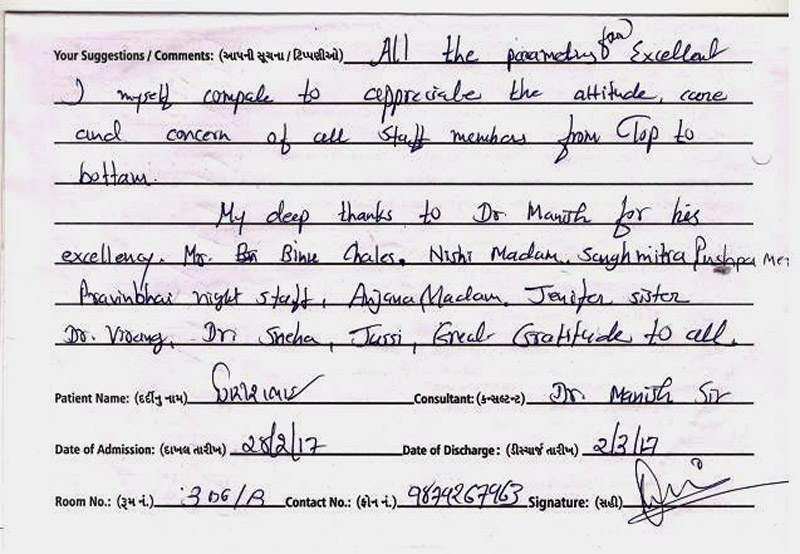 Your Suggestions / Comments: (આપની સૂચના / ટિપ્પણીઓ) All the parameters Excellent
I myself compale to appreciate the attitude, care
and concern of all staff members from Top to
bottam.
My deep thanks to Dr. Manish for his
excellency. Mr. Binu Chales, Nishi Madam, Sanghmitra Pushpa Mem
Pravinbhai night staff, Anjana Madam, Jenifer sister
Dr. Virang, Dr. Sneha, Jussi, Great Gratitude to all.
Patient Name: (દર્દીનું નામ) Consultant: (કન્સલ્ટન્ટ) Dr. Manish Sir
Date of Admission: (દાખલ તારીખ) 28/2/17 Date of Discharge: (ડીસ્ચાર્જ તારીખ) 2/3/17
Room No.: (રૂમ નં.) Contact No.: (ફોન નં.) 9874267963 Signature: (સહી)